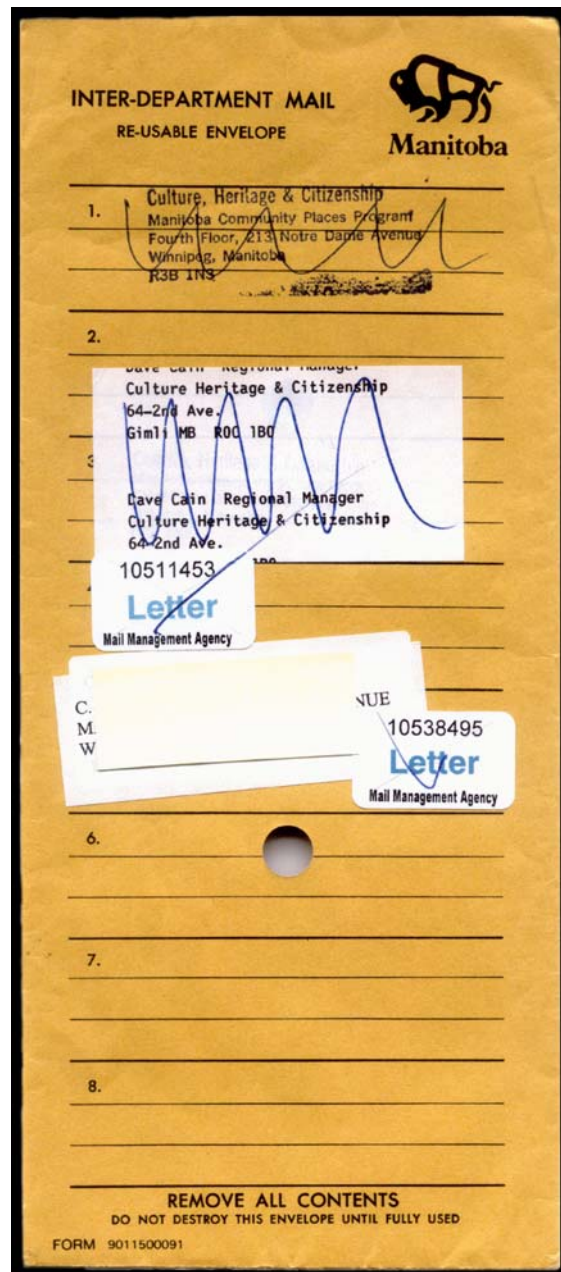 INTER-DEPARTMENT MAIL
RE-USABLE ENVELOPE
Manitoba
1.
Culture, Heritage & Citizenship
Manitoba Community Places Program
Fourth Floor, 213 Notre Dame Avenue
Winnipeg, Manitoba
R3B 1N3
2.
Dave Cain Regional Manager
Culture Heritage & Citizenship
64-2nd Ave.
Gimli MB R0C 1B0
3
Dave Cain Regional Manager
Culture Heritage & Citizenship
64-2nd Ave.
10511453
Letter
Mail Management Agency
C.
NUE
M.
W
10538495
Letter
Mail Management Agency
6.
7.
8.
REMOVE ALL CONTENTS
DO NOT DESTROY THIS ENVELOPE UNTIL FULLY USED
FORM 9011500091